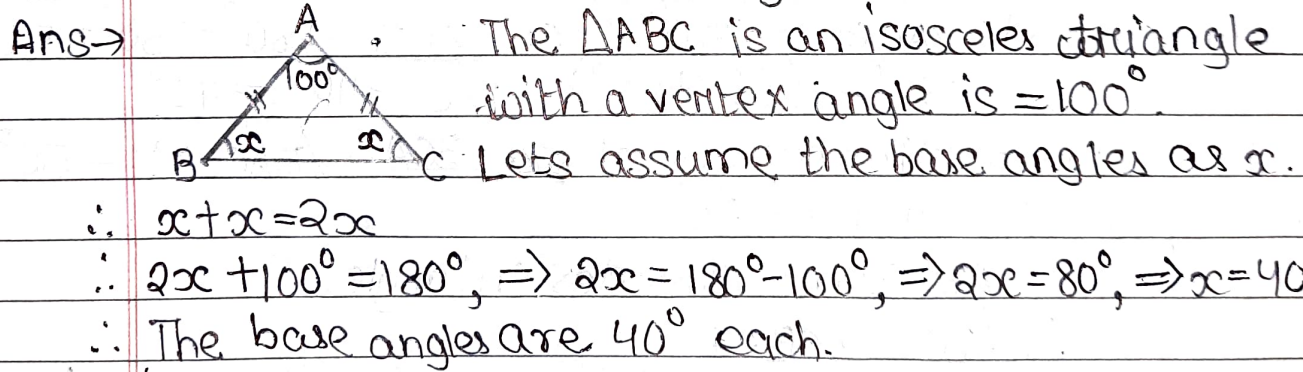 Ans→ A The ΔABC is an isosceles triangle
100° with a vertex angle is =100°.
x x
B C Lets assume the base angles as x.
∴ x+x=2x
∴ 2x+100°=180°, ⇒ 2x=180°-100°, ⇒2x=80°, ⇒x=40
∴ The base angles are 40° each.